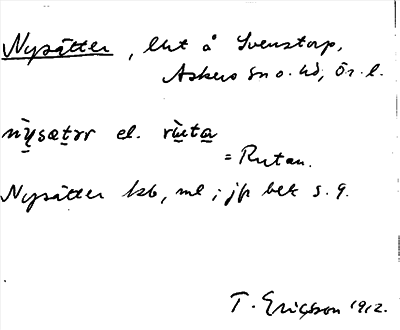 Nysätter, lht å Svenstorp,
Askers sn o. hd, Ör. l.
nỳsætər el. rùta
= Rutan.
Nysätter kb, ml; jp bek s. 9.
T. Ericsson 1912.